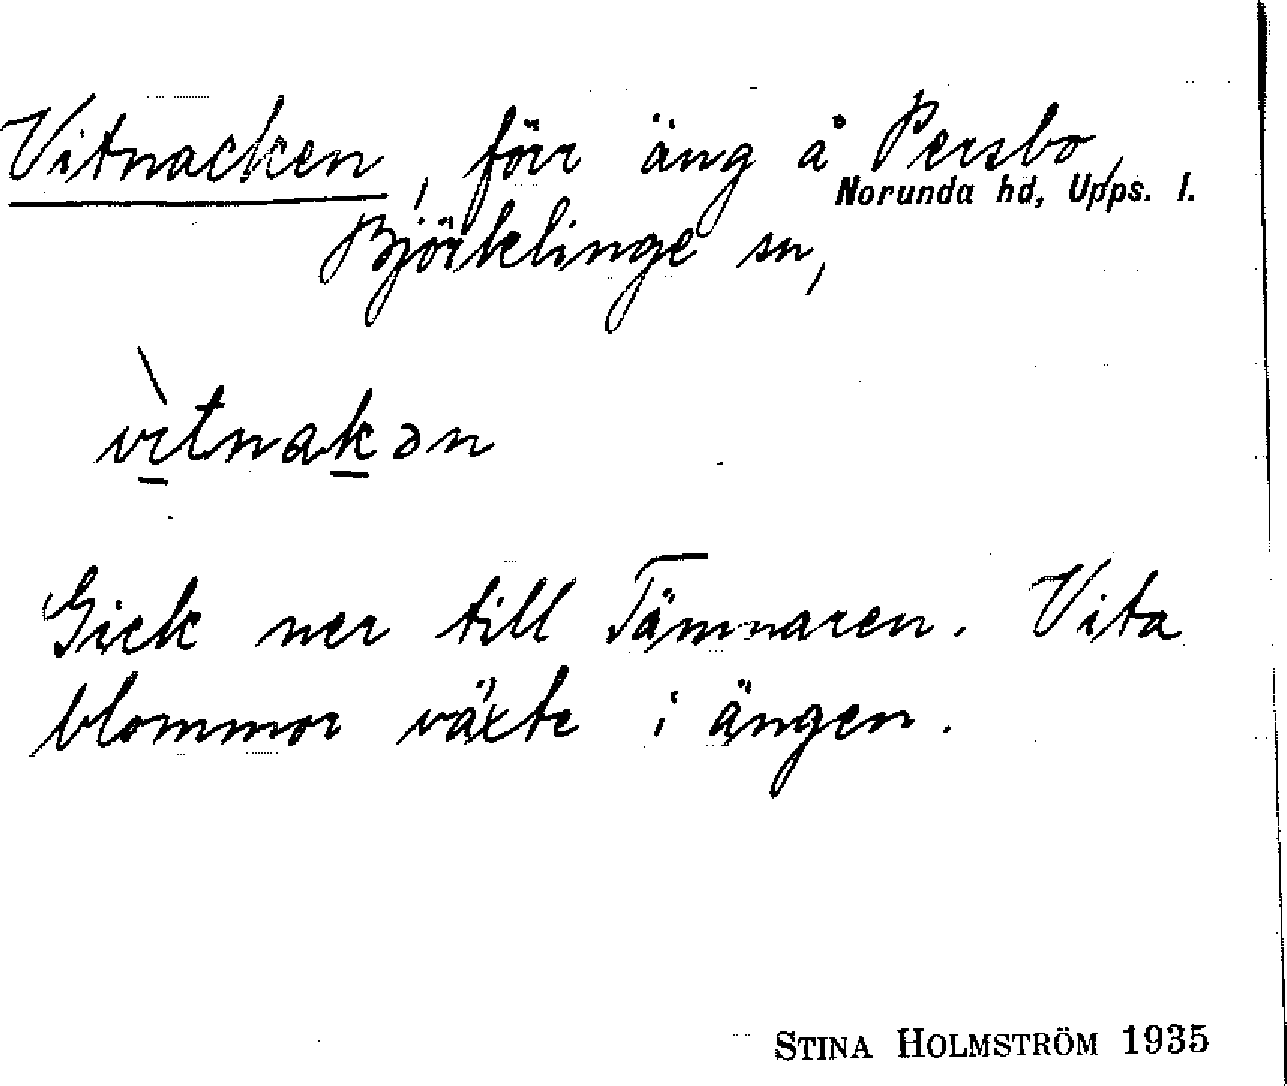 Vitnacken, förr äng å Persbo,
Norunda hd, Upps. l.
Björklinge sn,
vìtnakən
Gick ner till Tämnaren. Vita
blommor växte i ängen.
STINA HOLMSTRÖM 1935